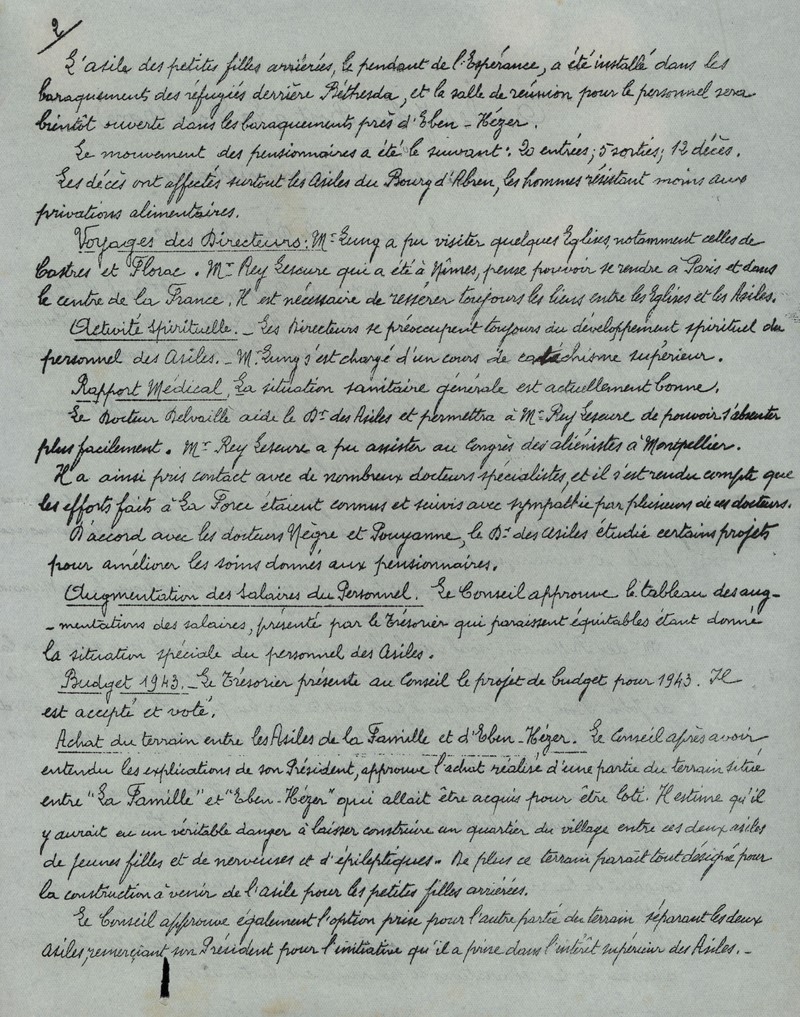 2/
L'asile des petites filles arriérées, le pendant de l'Espérance, a été installé dans les
baraquements des réfugiés derrière Béthesda, et la salle de réunion pour le personnel sera
bientôt ouverte dans les baraquements près d'Eben-Hézer.
Le mouvement des pensionnaires a été le suivant : 20 entrées; 5 sorties; 12 décès.
Les décès ont affectés surtout les Asiles du Bourg d'Abren, les hommes résistant moins aux
privations alimentaires.
Voyages des Directeurs: Mr Gung a pu visiter quelques Eglises, notamment celles de
Castres et Florac. Mr Rey Lescure qui a été à Nîmes, pense pouvoir se rendre à Paris et dans
le centre de la France. Il est nécessaire de resserer toujours les liens entre les Eglises et les Asiles.
Activité Spirituelle. _ Les Directeurs se préoccupent toujours du développement spirituel du
personnel des Asiles. _ Mr Gung s'est chargé d'un cours de catéchisme supérieur.
Rapport Médical. La situation sanitaire générale est actuellement bonne.
Le Docteur Delvaille aide le Dr des Asiles et permettra à Mr Rey Lescure de pouvoir s'absenter
plus facilement. Mr Rey Lescure a pu assister au Congrès des aliénistes à Montpellier.
Il a ainsi pris contact avec de nombreux docteurs spécialistes, et il s'est rendu compte que
les efforts faits à La Force étaient connus et suivis avec sympathie par plusieurs de ces docteurs.
D'accord avec les docteurs Nègre et Pouyanne, le Dr des Asiles étudie certains projets
pour améliorer les soins donnés aux pensionnaires.
Augmentation des Salaires du Personnel. Le Conseil approuve le tableau des aug-
-mentations des salaires, présenté par le Trésorier qui paraissent équitables étant donné
la situation spéciale du personnel des Asiles.
Budget 1943. _ Le Trésorier présente au Conseil le projet de budget pour 1943. Il
est accepté et voté.
Achat du terrain entre les Asiles de la Famille et d'Eben-Hézer. Le Conseil après avoir
entendu les explications de son Président, approuve l'achat réalisé d'une partie du terrain situé
entre "La Famille" et "Eben-Hézer" qui allait être acquis pour être loti. Il estime qu'il
y aurait eu un véritable danger à laisser construire un quartier du village entre ces deux asiles
de jeunes filles et de nerveuses et d'épileptiques. De plus ce terrain paraît tout désigné pour
la construction à venir de l'asile pour les petites filles arriérées.
Le Conseil approuve également l'option prise pour l'autre partie du terrain séparant les deux
asiles, remerçiant son Président pour l'initiative qu'il a prise dans l'intérêt supérieur des Asiles. _